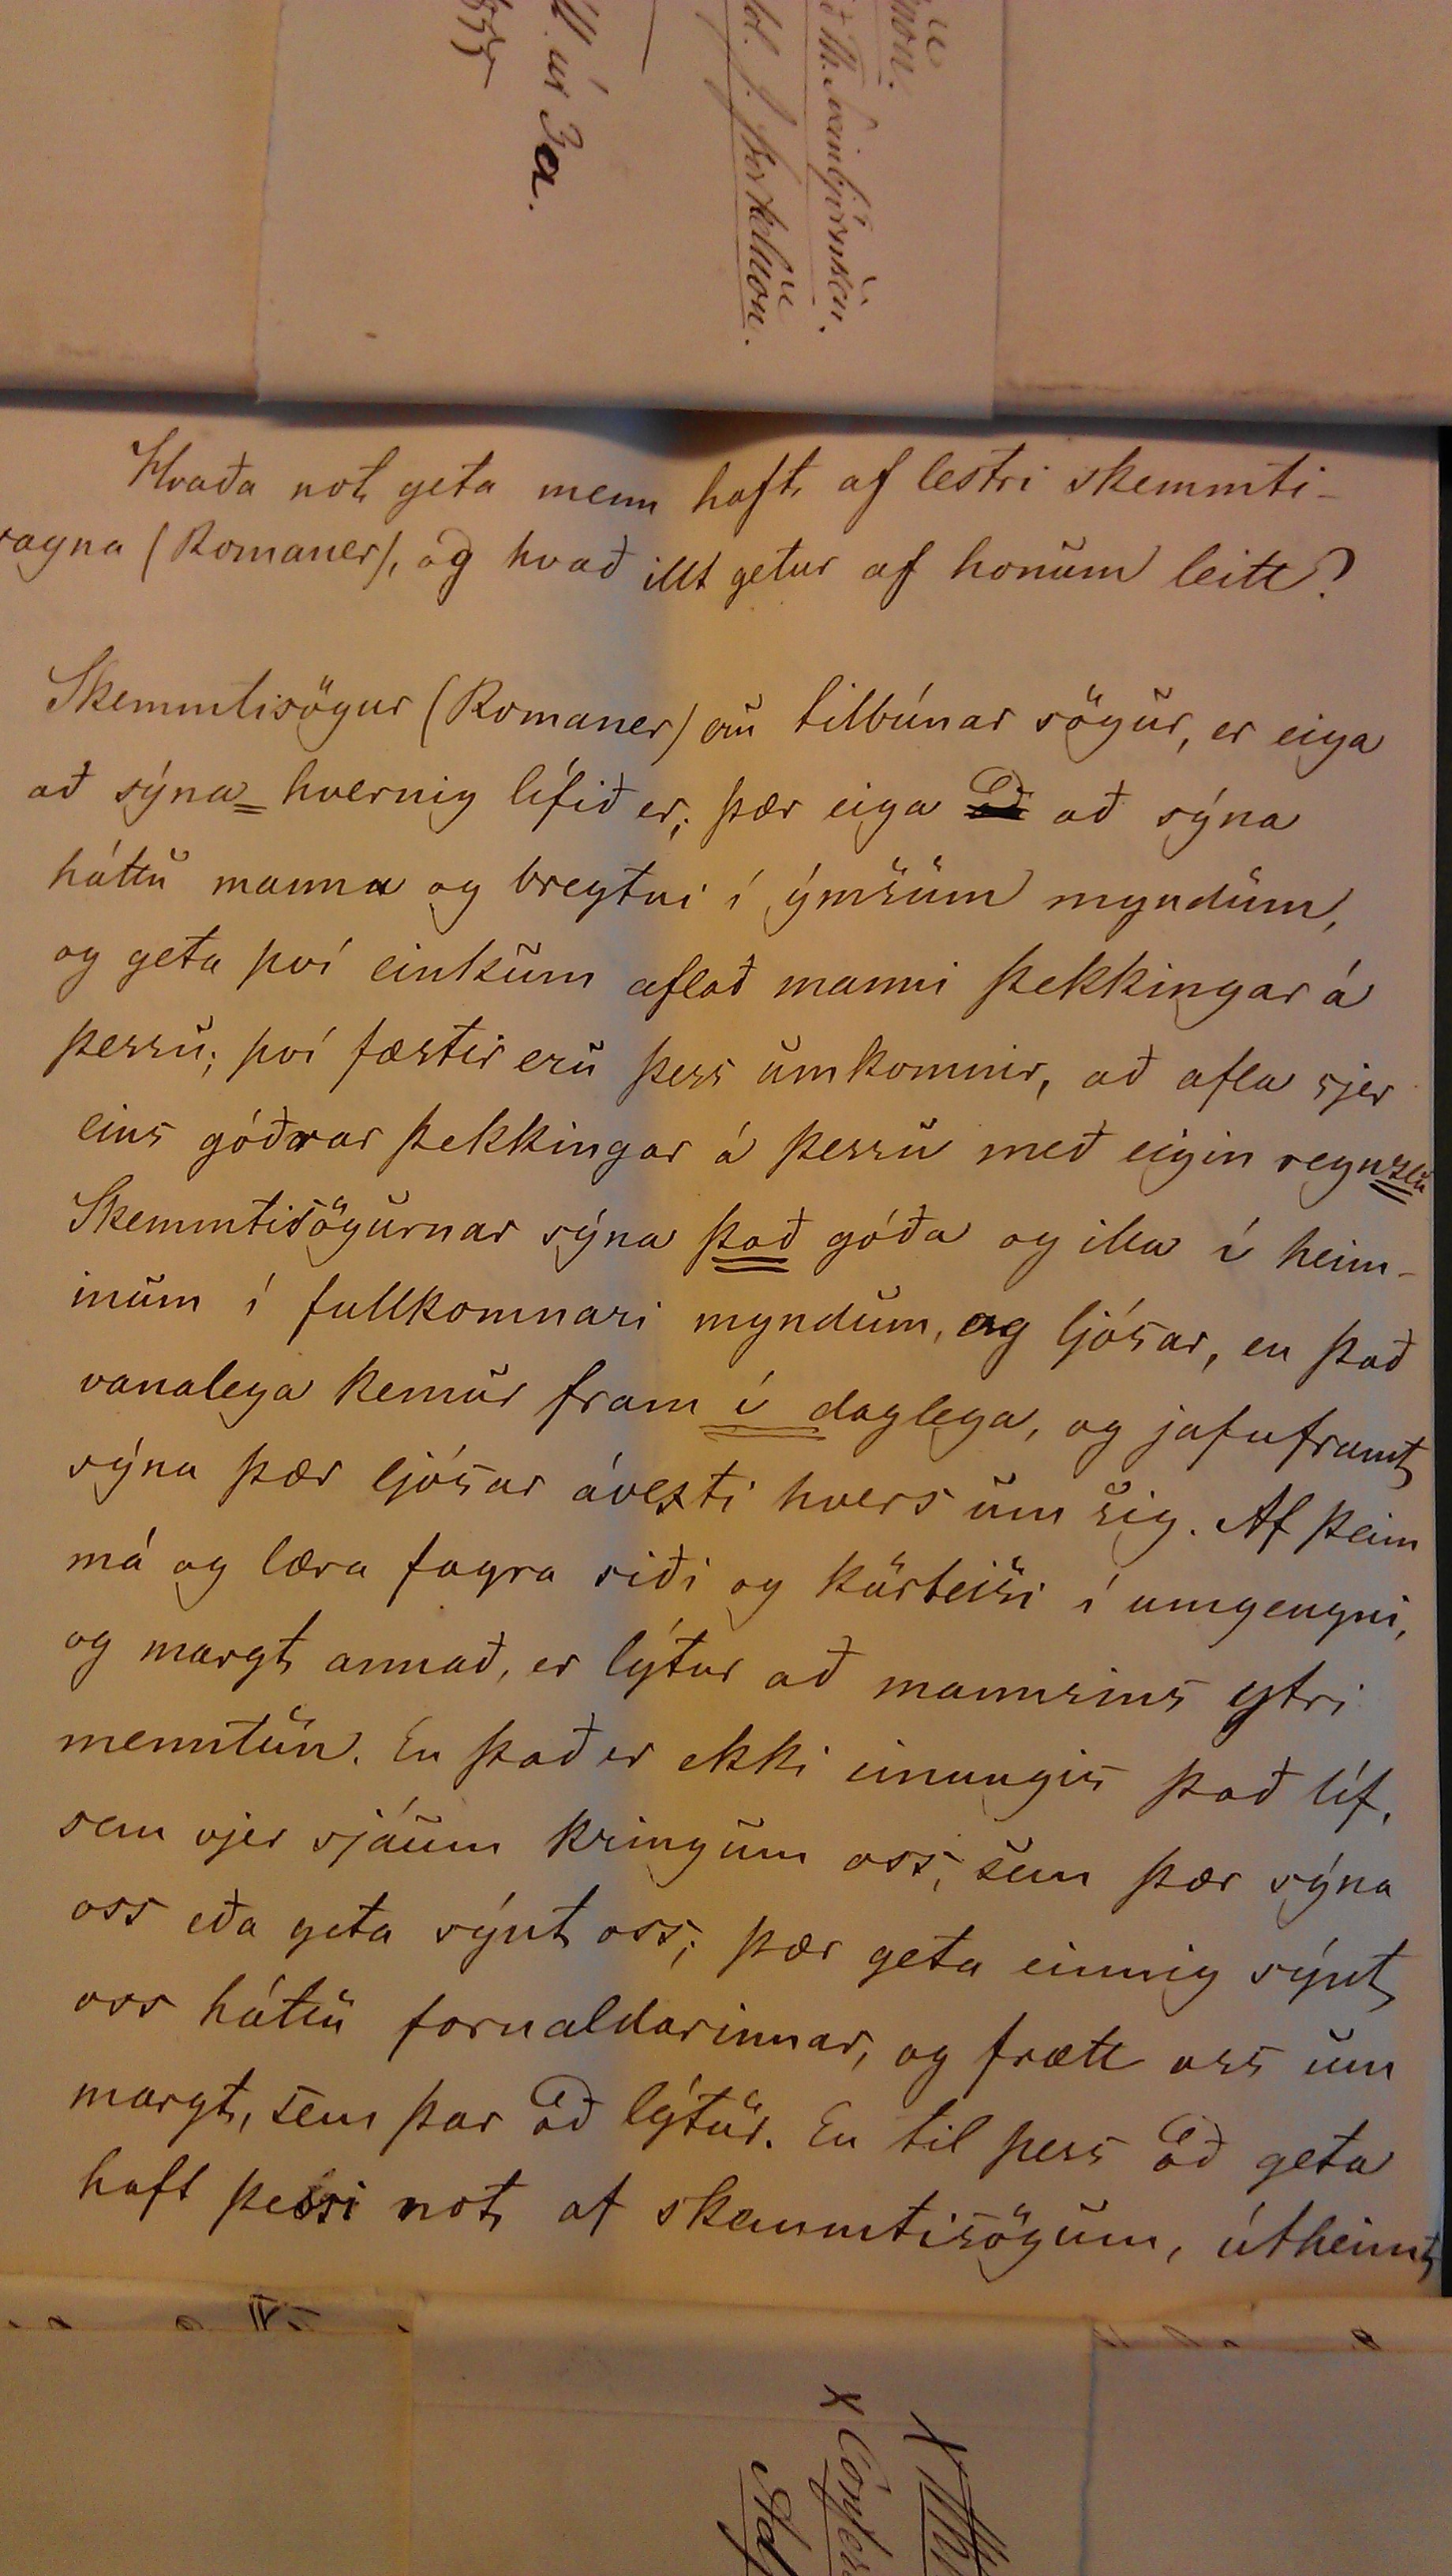 Hvaða not geta menn haft af lestri skemmti-
sagna (Romaner), og hvað illt getur af honum leitt?
Skemmtisögur (Romaner) eru tilbúnar sögur, er eiga
að sýna hvernig lífið er; þær eiga að sýna
háttu manna og breytni í ýmsum myndum,
og geta því einkum aflað manni þekkingar á
þessu; því fæstir eru þess umkomnir, að afla sjer
eins góðrar þekkingar á þessu með eigin reynzlu
Skemmtisögurnar sýna það góða og illa í heim-
inum í fullkomnari myndum, og ljósar, en það
vanalega kemur fram í daglega, og jafnframt
sýna þær ljósar ávexti hvers um sig. Af þeim
má og læra fagra siði og kurteisi í umgengni,
og margt annað, er lýtur að mannsins ytri
menntun. En það er ekki einungis það líf,
sem vjer sjáum kringum oss, sem þær sýna
oss eða geta sýnt oss; þær geta einnig sýnt
oss háttu fornaldarinnar, og frætt oss um
margt, sem þar að lýtur. En til þess að geta
haft þessi not af skemmtisögum, útheimt